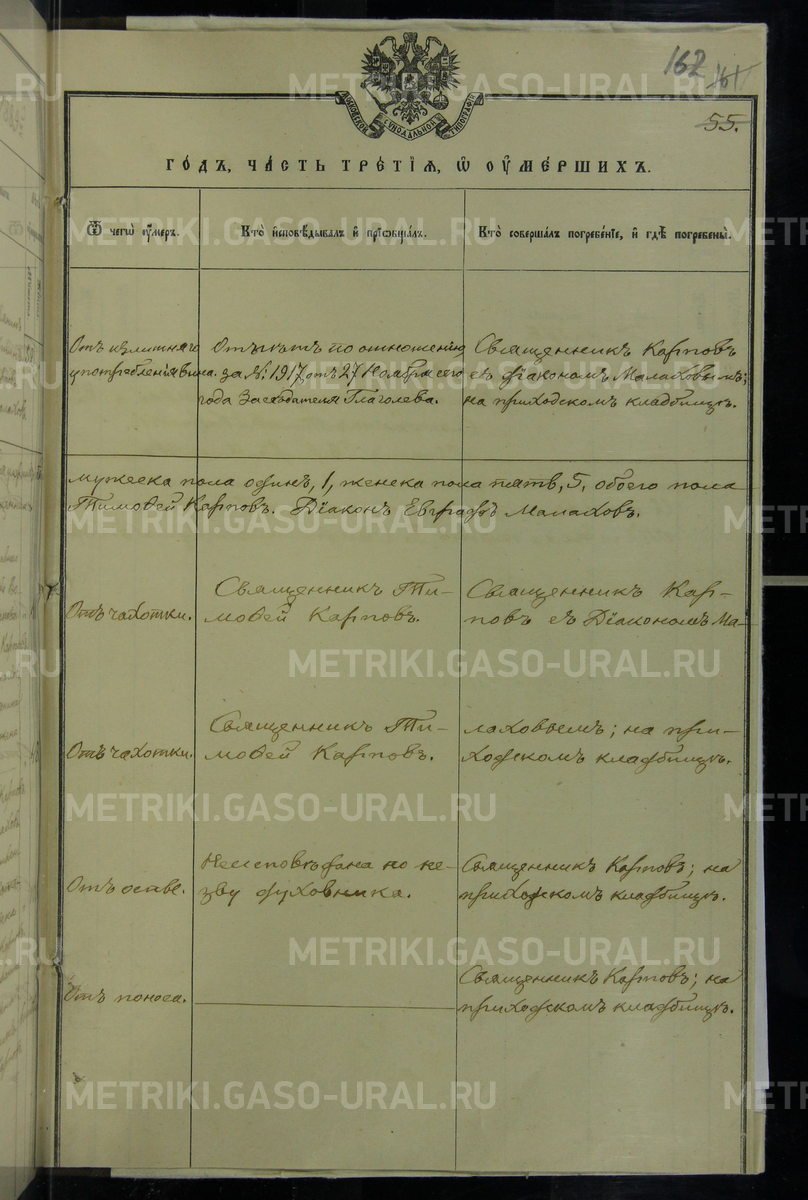 162
161
55.
МОСКОВСКОЙ СѴНОДАЛЬНОЙ ТИПОГРАФІИ
ГО́ДЪ, ЧА́СТЬ ТРЕ́ТІѦ, Ѡ҆ ОУ҆МЕ́РШИХЪ.
Ѿ чегѡ̀ оу҆́меръ.
Кто̀ и҆сповѣ́дывалъ и҆ прїѡбща́лъ.
Кто̀ соверша́лъ погребе́нїе, и҆ гдѣ̀ погребены̀.
Отъ излишняго
употребленія вина.
Отпѣтъ по отношенію
за № 1917, отъ 27 Ноября сего
года Засѣдателя Глаголева.
Священникъ Карповъ
съ Діакономъ Малаховымъ;
на приходскомъ кладбищѣ.
мужеска пола одинъ, 1, женска пола пять, 5, обоего пола
Тимоѳей Карповъ. Діаконъ Евграфъ Малаховъ.
Отъ чахотки.
Священникъ Ти-
моѳей Карповъ.
Священникъ Кар-
повъ съ Діакономъ Ма-
Отъ чахотки.
Священникъ Ти-
моѳей Карповъ.
лаховымъ; на при-
ходскомъ кладбищѣ.
Отъ оспы.
Неисповѣдана по не-
зву духовника.
Священникъ Карповъ; на
приходскомъ кладбищѣ.
Отъ поноса.
Священникъ Карповъ; на
приходскомъ кладбищѣ.
METRIKI.GASO-URAL.RU